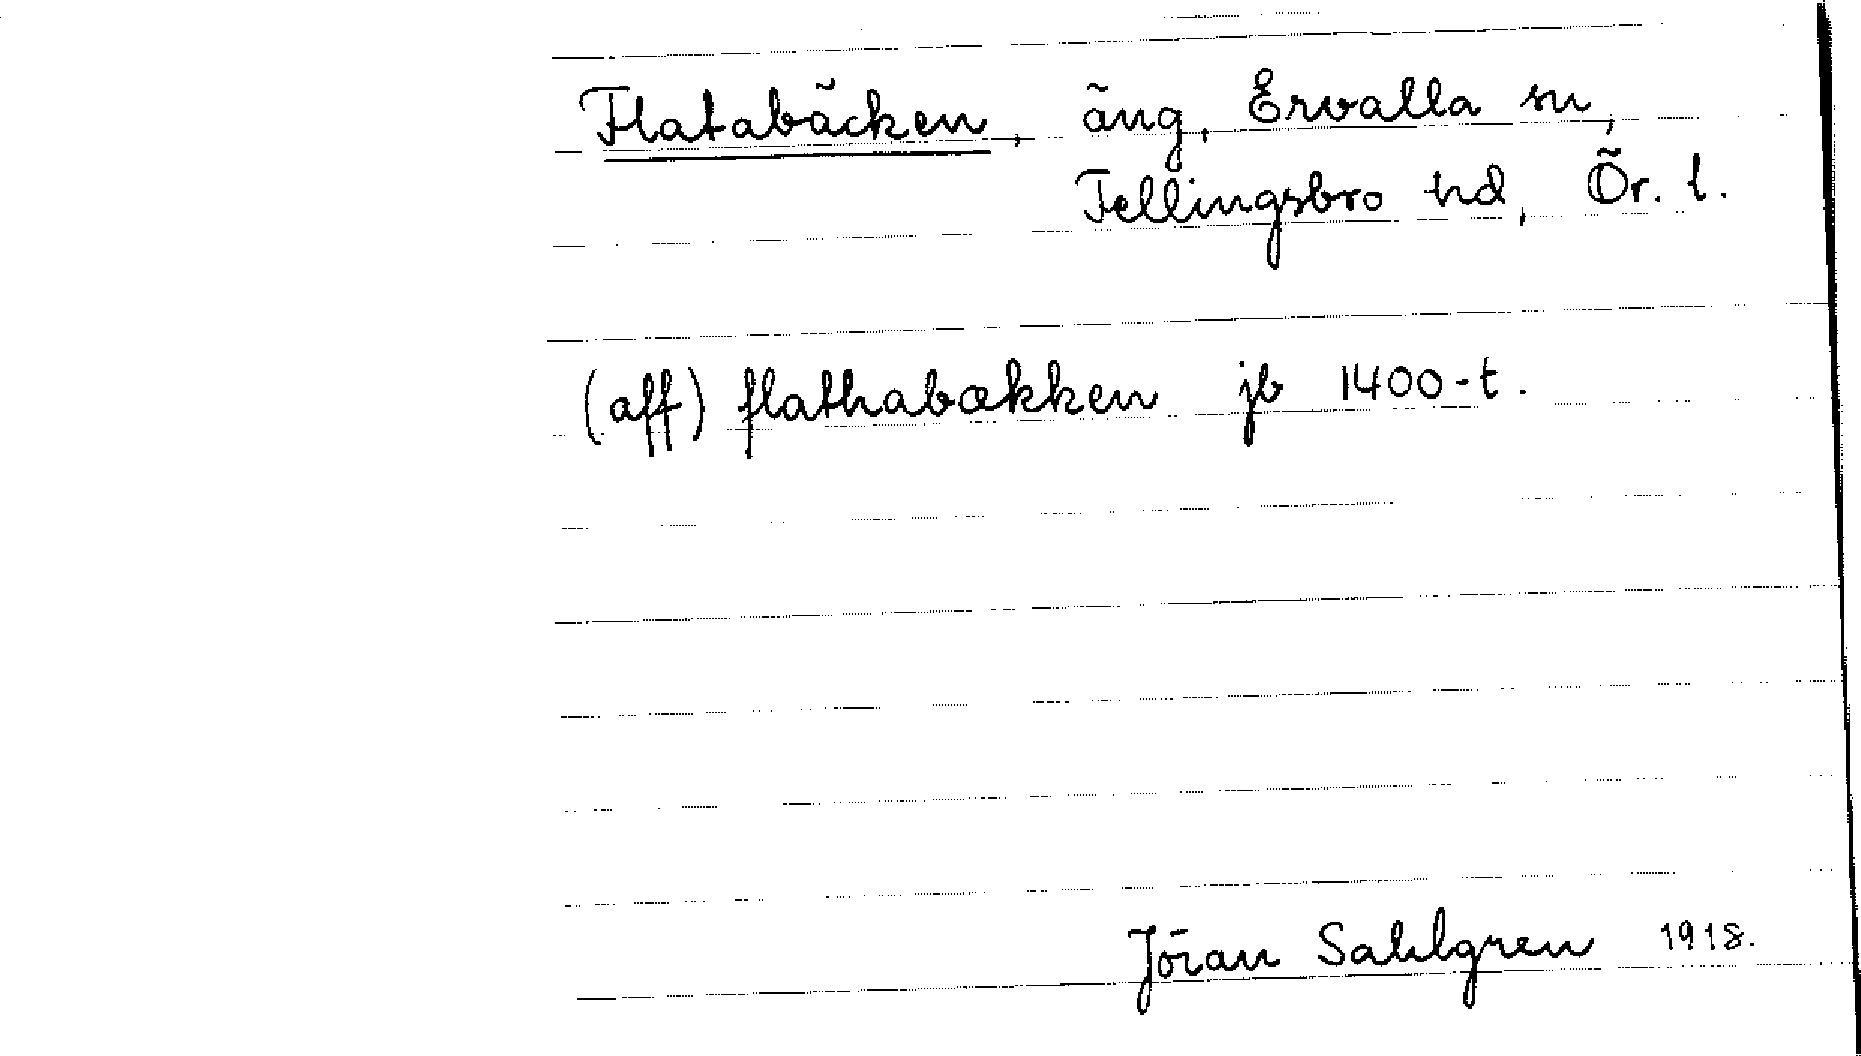 Flatabäcken, äng, Ervalla sn,
Fellingsbro hd, Ör. l.
(aff) flathabækken jb 1400-t.
Jöran Sahlgren 1918.